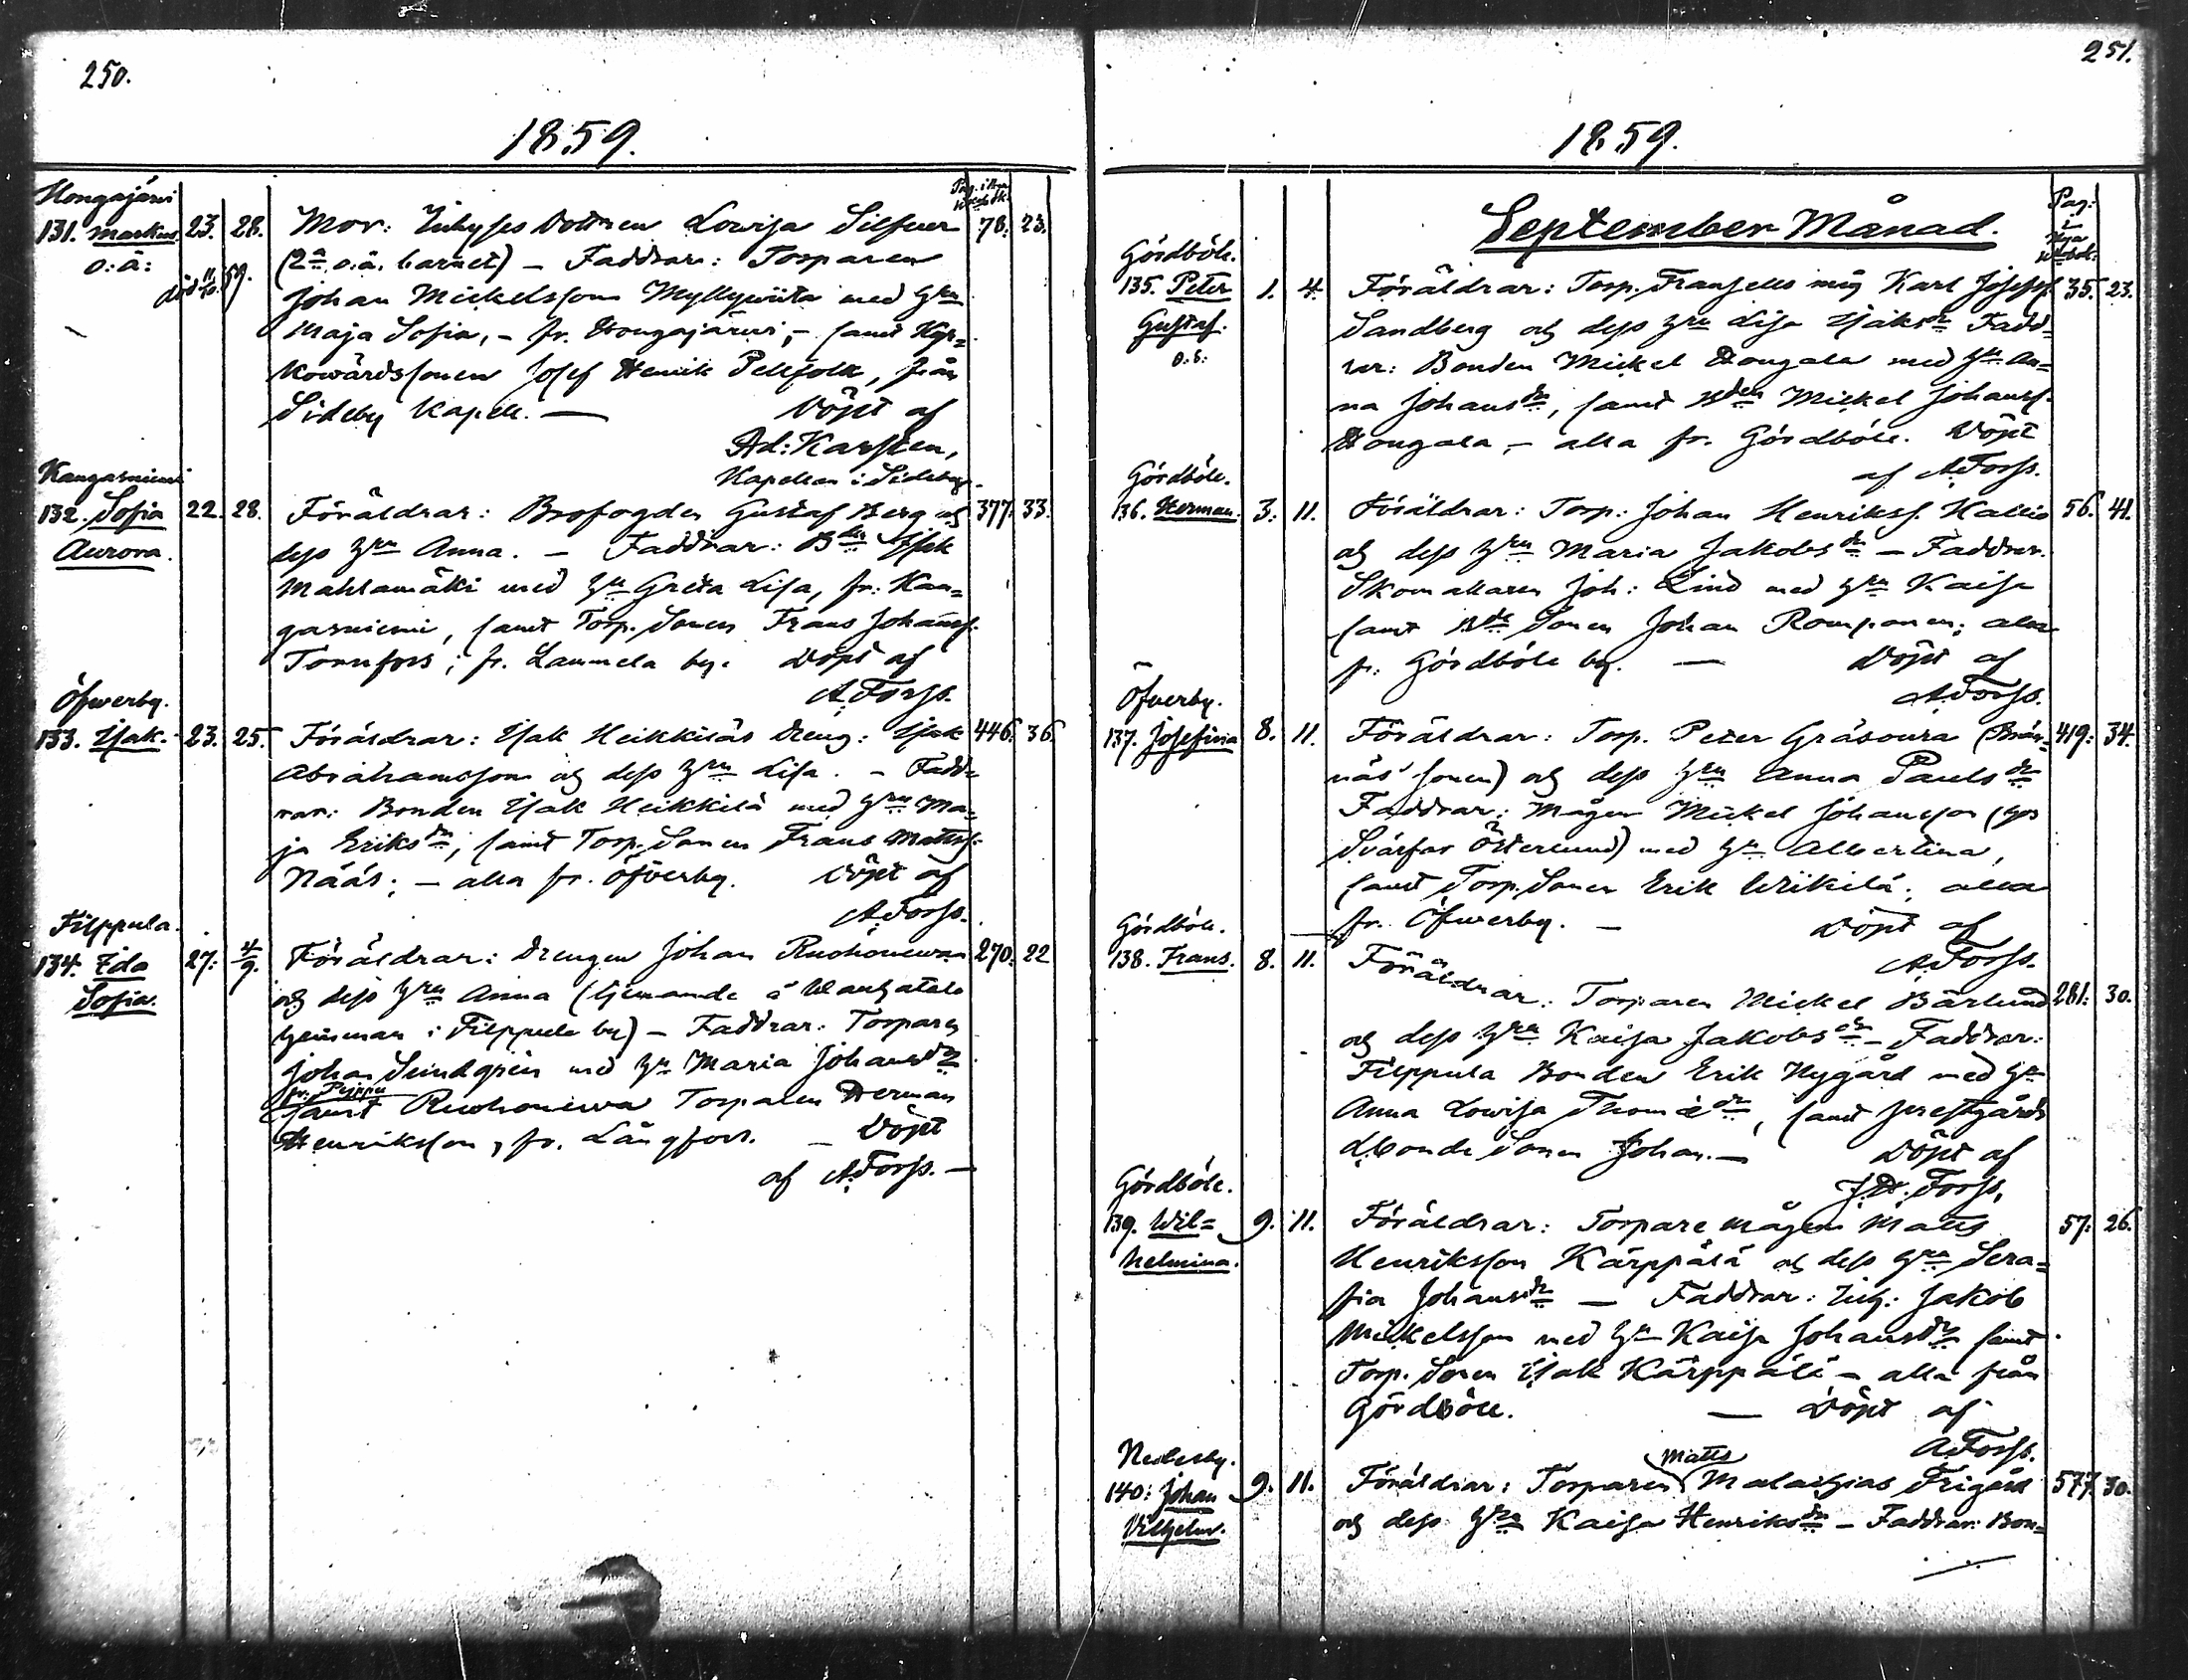 250.
1859.
Hongajärvi
131. Markus.
o: ä:
död 11/10. 59.
23. 28.
Mor: Inhyses Dottren Lowisa Silfver
(2a o. ä. barnet) – Faddrar: Torparen
Johan Mickelsson Myllyviita med hu
Maja Sofia, – fr. Hongajärvi, – samt
sonen Josef Henrik Pellfolk, från
Sideby Kapell. — Döpt af
Ad: Karsten,
Kapellan i Sideby.
78. 23.
Kangasniemi
132. Sofia
Aurora.
22. 28.
Föräldrar: Brofogden Gustaf Berg och
dess hru Anna. – Faddrar: Bdn Isak
Mahlamäki med hu Greta Lisa, fr. Kan=
gasniemi, samt Torp. Sonen Frans Johanss.
Tornfors; fr. Lammela by. Döpt af
A. Forss.
377. 33.
Öfverby.
133. Isak.
23. 25.
Föräldrar: Isak Heikkiläs dreng: Isak
Abrahamsson och dess hru Lisa. – Fadd=
rar: Bonden Isak Heikkilä med hru Ma=
ja Eriksdr, samt Torp. Sonen Frans Mattss.
Nääs; – alla fr. Öfverby. Döpt af
A. Forss.
446. 36.
Filppula.
134. Ida
Sofia.
27. 4/9.
Föräldrar: Drengen Johan Ruohonewa
och dess hru Anna (tjenande å
hemman i Filppula by) – Faddrar: Torparen
Johan Lindgren med hu Maria Johansdr
fr. Peippu
samt Ruohonewa Torparen Herman
Henriksson, fr. Långfors. – Döpt
af A. Forss. –
270. 22
251.
1859.
September Månad.
Pag: i Nya
Gördböle.
135. Peter
Gustaf.
1. 4.
Föräldrar: Torp. Fransells måg Karl Josefss.
Sandberg och dess hru Lisa Isaksdr Fadd=
rar: Bonden Mickel Hongala med hu An=
na Johansdr, samt Bden Mickel Johanss.
Hongala, – alla fr. Gördböle. Döpt
af A. Forss.
35. 23.
Gördböle.
136. Herman.
3. 11.
Föräldrar: Torp: Johan Henrikss. Kallio
och dess hru Maria Jakobsdr – Faddrar.
Skomakaren Joh: Lind med hru Kaisa
samt Bde Sonen Johan Romponen; alla
fr. Gördböle by. — Döpt af
A. Forss.
56. 41.
Öfverby.
137. Josefina
8. 11.
Föräldrar: Torp. Peter Gråsoura
näs' sonen) och dess hru Anna Paulsdr
Faddrar: Mågen Mickel Johansson (hos
Svärfar Österlund) med hu Albertina,
samt Torp. Sonen Erik Wiikilä; alla
fr. Öfwerby. – Döpt af
A. Forss.
419. 34.
Gördböle.
138. Frans.
8. 11.
Föräldrar: Torparen Mickel Bärlund
och dess hru Kaisa Jakobsdr – Faddrar:
Filppula Bonden Erik Nygård med hu
Anna Lowisa Thomædr, samt Prestgårds
Bonde Sonen Johan. — Döpt af
J. H. Forss,
281. 30.
Gördböle.
139. Wil=
helmina.
9. 11.
Föräldrar: Torpare mågen Matts
Henriksson Kärppälä och dess hru Sera=
fia Johansdr — Faddrar: Inh: Jakob
Mickelsson med hu Kaisa Johansdr samt
Torp. Sonen Isak Kärppälä – alla från
Gördböle. — Döpt af
A. Forss.
57. 26.
Nederby.
140. Johan
Vilhelm.
9. 11.
Matts
Föräldrar: Torparen Malachias Frigård
och dess hru Kaisa Henriksdr – Faddrar: Bon=
577. 30.